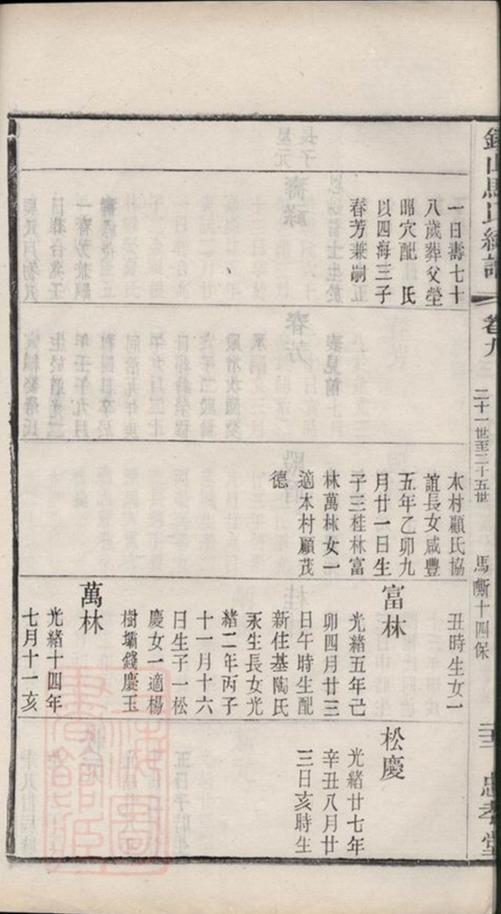 山馬氏續譜
卷九
二十一世至二十五世
馬嘶十四保
忠孝堂
一日壽七十
八歲葬父塋
昭穴配 氏
以四海三子
春芳兼嗣
木村顧氏協
誼長女咸豐
五年乙卯九
月廿一日生
子三桂林富
林萬林女一
適木村顧茂
德
丑時生女一
富林
光緒五年己
卯四月廿三
日午時生配
新住基陶氏
永生長女光
緒二年丙子
十一月十六
日生子一松
慶女一適楊
樹壩錢慶玉
萬林
光緒十四年
七月十一亥
松慶
光緒廿七年
辛丑八月廿
三日亥時生